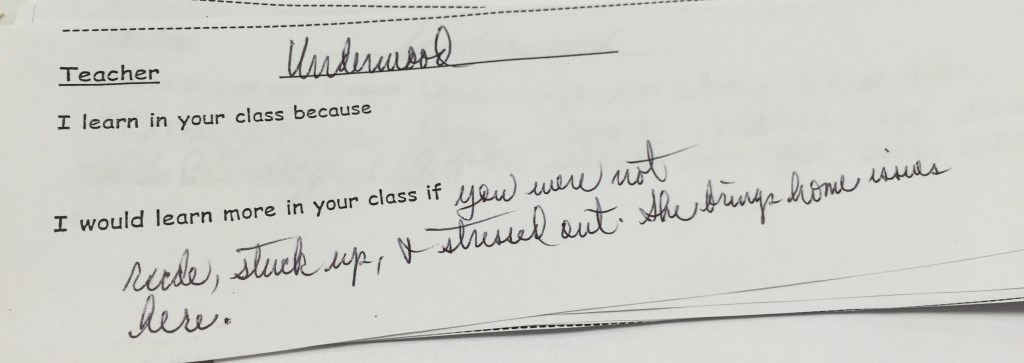 Teacher Underwood
I learn in your class because
I would learn more in your class if you were not
rude, stuck up, & stressed out. She brings home issues
here.